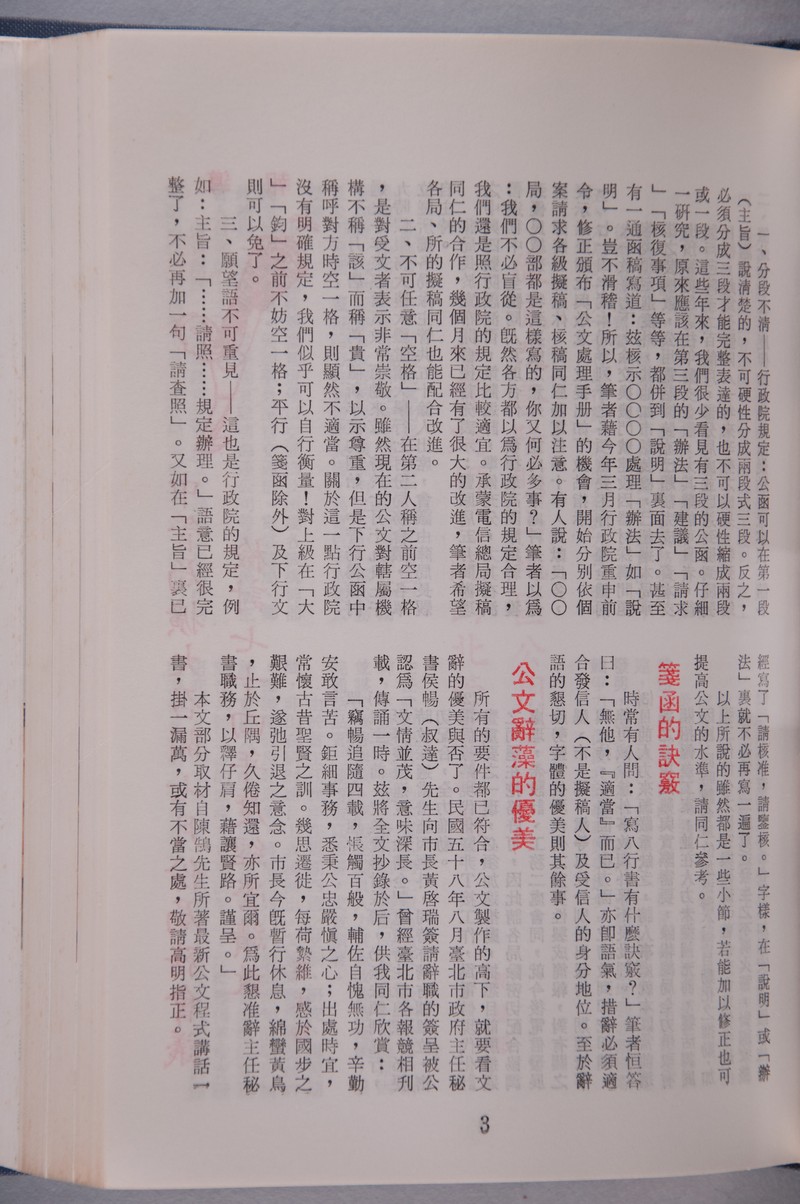 一、分段不清——行政院規定：公函可以在第一段
（主旨）說清楚的，不可硬性分成兩段式三段。反之，
必須分成三段才能完整表達的，也不可以硬性縮成兩段
或一段。這些年來，我們很少看見有三段的公函。仔細
一研究，原來應該在第三段的「辦法」「建議」「請求
」「核復事項」等等，都併到「說明」裏面去了。甚至
有一通函稿寫道：玆核示〇〇〇〇處理「辦法」如「說
明」。豈不滑稽！所以，筆者藉今年三月行政院重申前
令，修正頒布「公文處理手册」的機會，開始分別依個
案請求各級擬稿、核稿同仁加以注意。有人說：「〇〇
局，〇〇部都是這樣寫的，你又何必多事？」筆者以爲
：我們不必盲從。旣然各方都以爲行政院的規定合理，
我們還是照行政院的規定比較適宜。承蒙電信總局擬稿
同仁的合作，幾個月來已經有了很大的改進，筆者希望
各局、所的擬稿同仁也能配合改進。
二、不可任意「空格」——在第二人稱之前空一格
，是對受文者表示非常崇敬。雖然現在的公文對轄屬機
構不稱「該」而稱「貴」，以示尊重，但是下行公函中
稱呼對方時空一格，則顯然不適當。關於這一點行政院
沒有明確規定，我們似乎可以自行衡量！對上級在「大
」「鈞」之前不妨空一格；平行（箋函除外）及下行文
則可以免了。
三、願望語不可重見——這也是行政院的規定，例
如：主旨：「……請照……規定辦理。」語意已經很完
整了，不必再加一句「請查照」。又如在「主旨」裏已
經寫了「請核准，請鑒核。」字樣，在「說明」或「辦
法」裏就不必再寫一遍了。
以上所說的雖然都是一些小節，若能加以修正也可
提高公文的水準，請同仁參考。
箋函的訣竅
時常有人問：「寫八行書有什麼訣竅？」筆者恒答
曰：「無他，『適當』而已。」亦卽語氣，措辭必須適
合發信人（不是擬稿人）及受信人的身分地位。至於辭
語的懇切，字體的優美則其餘事。
公文辭藻的優美
所有的要件都已符合，公文製作的高下，就要看文
辭的優美與否了。民國五十八年八月臺北市政府主任秘
書侯暢（叔達）先生向市長黃啓瑞簽請辭職的簽呈被公
認爲「文情並茂，意味深長。」曾經臺北市各報競相刋
載，傳誦一時。玆將全文抄錄於后，供我同仁欣賞：
「竊暢追隨四載，悵觸百般，輔佐自愧無功，辛勤
安敢言苦。鉅細事務，悉秉公忠嚴愼之心；出處時宜，
常懷古昔聖賢之訓。幾思遷徙，每荷縶維，感於國步之
艱難，遂弛引退之意念。市長今旣暫行休息，綿蠻黃鳥
，止於丘隅，久倦知還，亦所宜爾。爲此懇准辭主任秘
書職務，以釋仔肩，藉讓賢路。謹呈。」
本文部分取材自陳鵠先生所著最新公文程式講話一
書，掛一漏萬，或有不當之處，敬請高明指正。
3